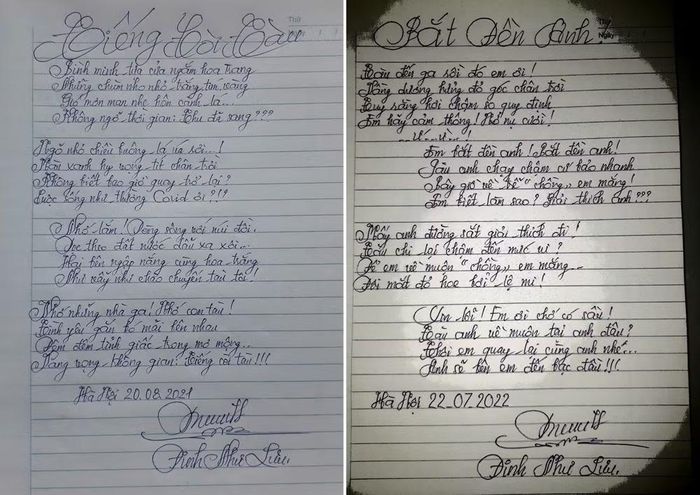 Tiếng Còi Tàu
Thứ
Bình minh tựa cửa ngắm hoa trang
Những chùm nho nhỏ trắng tím vàng
Gió mơn man nhẹ hôn cành lá...
Không ngờ thời gian: Thu đã sang???
Ngõ nhỏ chiều buông lá úa rơi..!
Màu xanh hy vọng tít chân trời
Không biết bao giờ quay trở lại?
Cuộc sống như thường Covid ơi?!?
Nhớ lắm! Dòng sông với núi đồi.
Dọc theo đất nước dẫu xa xôi...
Hai bên ngập nắng cùng hoa trắng
Như vẫy như chào chuyến tàu tôi!
Nhớ những nhà ga! Nhớ con tàu!
Tình yêu gắn bó mãi bên nhau
Đêm đêm tỉnh giấc trong mơ mộng..
Vang vọng không gian: Tiếng còi tàu!!!
Hà Nội 20.08.2021
Đinh Như Lưu.
Bắt Đền Anh!
Thứ
Ngày
Tàu đến ga rồi đó em ơi!
Vầng dương hửng đỏ góc chân trời
Tuy rằng hơi chậm so quy định
Em hãy cảm thông! Nhớ nụ cười!
Em bắt đền anh! Bắt đền anh!
Tàu anh chạy chậm cứ bảo nhanh
Bây giờ về trễ "chồng" em mắng!
Em biết làm sao? Giải thích anh???
Mấy anh đường sắt giải thích đi!
Tàu chi lại chậm đến mức vì?
Để em về muộn "chồng" em mắng..
Đôi mắt đỏ hoe lệ mi!
Xin lỗi! Em ơi chớ có sầu!
Tàu anh về muộn tại anh đâu?
Thôi em quay lại cùng anh nhé...
Anh sẽ bên em đến bạc đầu!!!
Hà Nội 22.07.2022
Đinh Như Lưu.